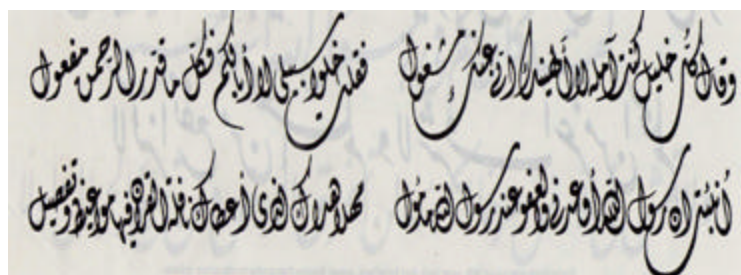 وقال كل خليل كنت آمله لا ألهينك إني عنك مشغول فقلت خلوا سبيلي لا أبا لكم فكل ما قدر الرحمن مفعول
أنبئت أن رسول الله أوعدني والعفو عند رسول الله مأمول مهلا هداك الذي أعطاك نافلة القرآن فيها مواعيظ وتفصيل